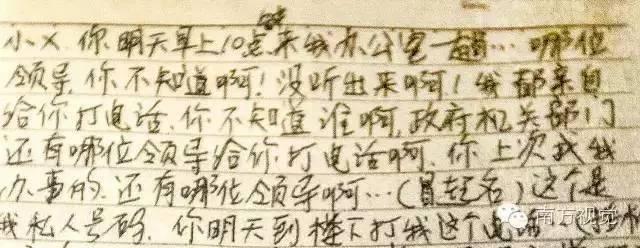 小X.你明天早上10点来我办公室一趟…哪位
领导.你不知道啊!没听出来啊!我都亲自
给你打电话.你不知道谁啊,政府机关部门
还有哪位领导给你打电话啊.你上次找我
办事的.还有哪位领导啊…(冒起名)这个是
我私人号码.你明天到楼下打我这个电话
南方视觉